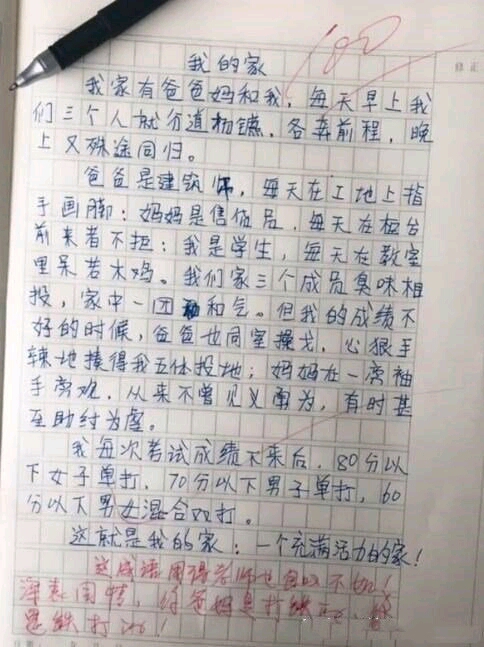 100
修正
我的家
我家有爸爸妈和我，每天早上我
们三个人就分道扬镳，各奔前程，晚
上又殊途同归。
爸爸是建筑师，每天在工地上指
手画脚；妈妈是售货员，每天在柜台
前来者不拒；我是学生，每天在教室
里呆若木鸡。我们家三个成员臭味相
投，家中一团和气。但我的成绩不
好的时候，爸爸也同室操戈，心狠手
辣地揍得我五体投地；妈妈在一旁袖
手旁观，从来不曾见义勇为，有时甚
至助纣为虐。
我每次考试成绩下来后，80分以
下女子单打，70分以下男子单打，60
分以下男女混合双打。
这就是我的家：一个充满活力的家！
这成语用得老师也自叹不如！
深表同情，你爸妈是打铁的，你
是铁打的！